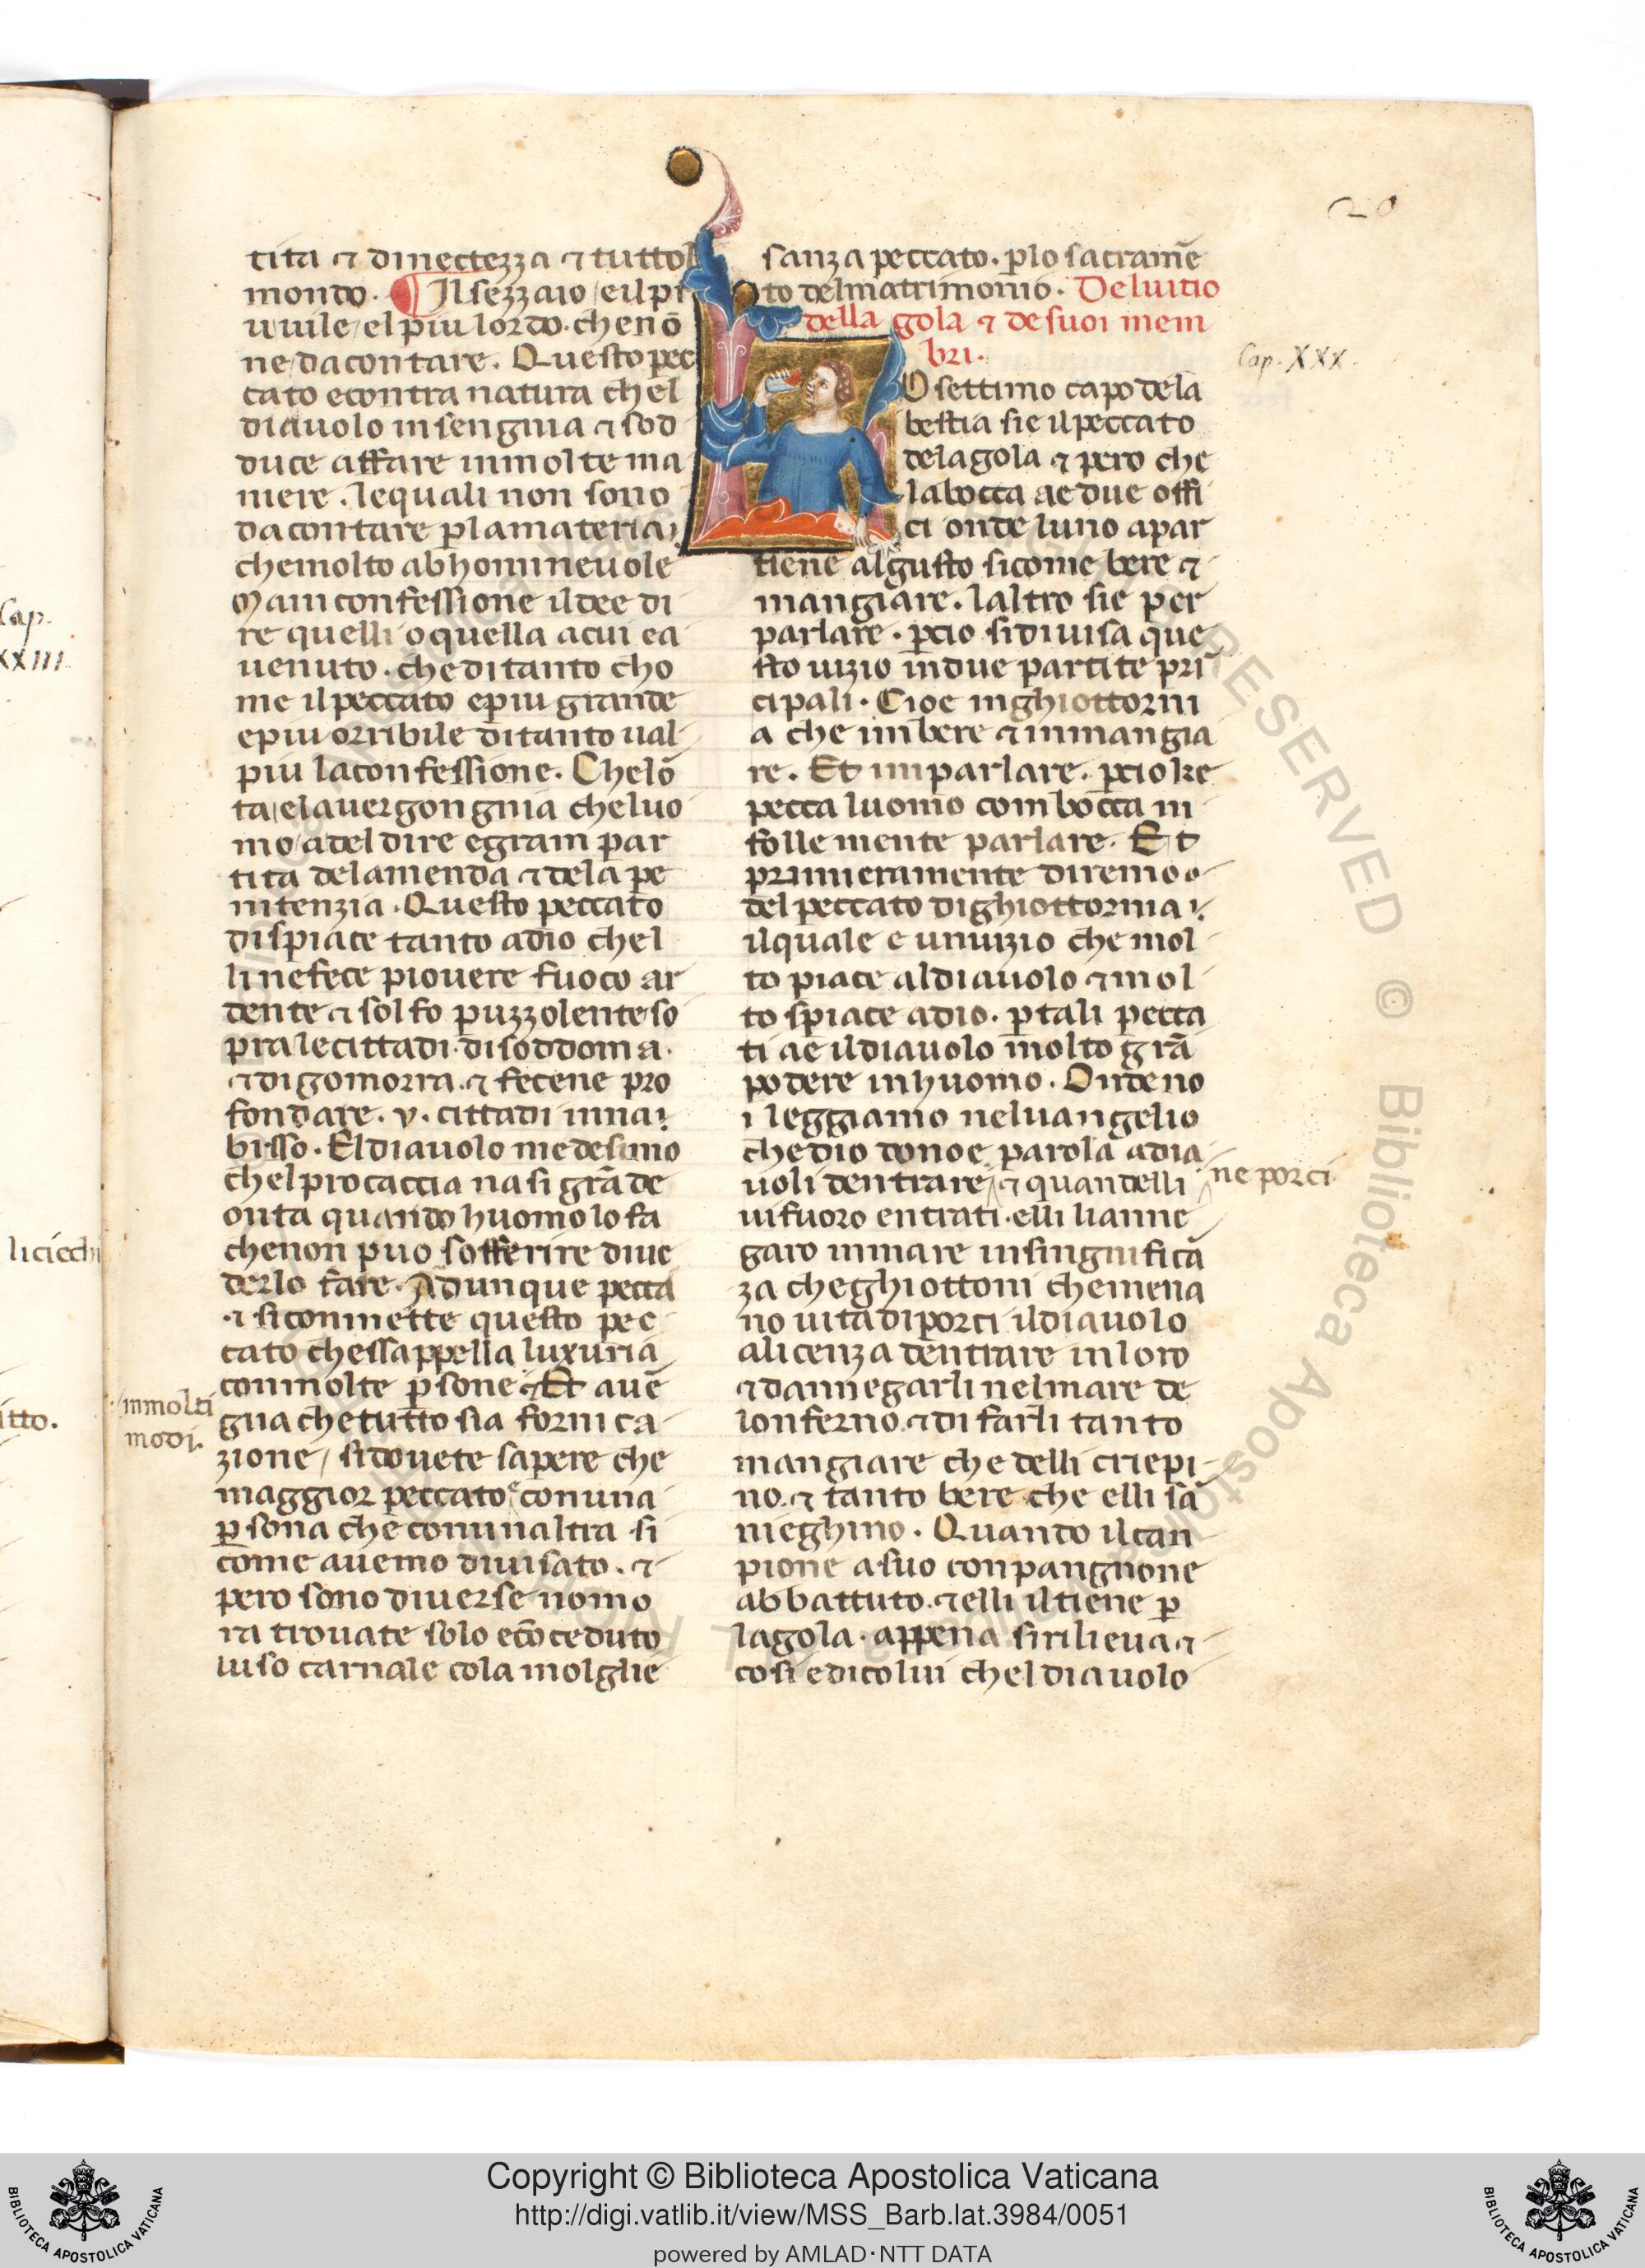 20
tita ⁊ dinectezza ⁊ tuttol
mondo. ¶ Il sezzaio / eilpi
u uile / elpiu lordo. chenō
ne / dacontare. Questo pec
cato econtra natura chel
diauolo insengnia ⁊ sod
duce affare inmolte ma
niere. lequali non sono
dacontare ꝑlamateria
chemolto abhomineuole
Mainconfessione ildee di
re quelli oquella acui ea
uenuto. cheditanto cho
me ilpeccato epiu grande
epiu orribile ditanto ual
piu laconfessione. Chelō
ta / elauergongnia cheluo
mo / adeldire egram par
tita delamenda ⁊ dela pe
nitenzia. Questo peccato
dispiace tanto adio chel
linefece piouere fuoco ar
dente ⁊ solfo puzzolente so
pralecittadi. disoddoma.
⁊ digomorra. ⁊ fecene pro
fondare. v. cittadi inna
bisso. Eldiauolo medesimo
chelprocaccia nasi grāde
onta quando huomo lofa
chenon puo sofferire diue
derlo fare. Adunque pecca
⁊ siconmette questo pec
cato chessappella luxuria
conmolte ꝑsone. ⁊ Et auē
inmolti
modi.
gna chetutto sia fornica
zione / sidouete sapere che
maggior peccato e conuna
ꝑsona che conunaltra si
come auemo diuisato. ⁊
pero sono diuerse nomo
ra trouate solo ecōceduto
luso carnale cola molglie
sanza peccato. ꝑlo sacramē
to delmatrimonio. Deluitio
della gola ⁊ de suoi mem
bri.
Cap. XXX.
O settimo capo dela
bestia sie ilpeccato
delagola ⁊ pero che
labocca ae due offi
ci onde luno apar
tiene algusto sicome bere ⁊
mangiare. laltro sie per
parlare. ꝑcio sidiuisa que
sto uizio indue partite prī
cipali. Cioe inghiottorni
a che imbere ⁊ inmangia
re. Et inparlare. ꝑcioke
pecca luomo com bocca in
folle mente parlare. Et
primeramente diremo
del peccato dighiottornia
ilquale e unuizio che mol
to piace aldiauolo ⁊ mol
to spiace adio. ꝑtali pecca
ti ae ildiauolo molto grā
podere inhuomo. Onde no
i leggiamo neluangelio
chedio dono e parola adia
uoli dentrare ⁊ quandelli
ne porci
uifuoro entrati. elli lianne
garo inmare insingnificā
za cheghiottoni chemena
no uita diporci ildiauolo
alicenza dentrare inloro
⁊ dannegarli nelmare de
lonferno. ⁊ di farli tanto
mangiare che delli criepi
no. ⁊ tanto bere che elli sā
nieghino. Quando ilcan
pione asuo conpangnone
abbattuto. ⁊ elli iltiene ꝑ
lagola. appena sirilieua ⁊
cosi edicolui cheldiauolo
Cap.
XXIII
li ciechi
itto.
RESERVED © Biblioteca Apostolica
BIBLIOTECA APOSTOLICA VATICANA
Copyright © Biblioteca Apostolica Vaticana
http://digi.vatlib.it/view/MSS_Barb.lat.3984/0051
powered by AMLAD·NTT DATA
BIBLIOTECA APOSTOLICA VATICANA